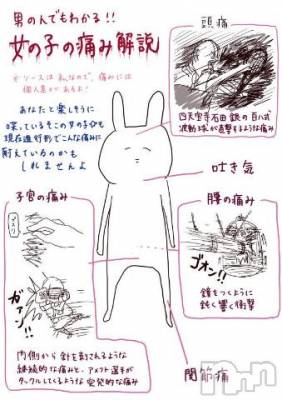 男のんでもわかる!!
女の子の痛み解説
※ソースは私なので、痛みには
個人差があるよ!
あなたと楽しそうに
喋っているその女の子分も
現在進行形でこんな痛みに
耐えているのかも
しれませんよ
頭痛
四天宝寺石田銀の百八式
波動球が直撃するような痛み
吐き気
子宮の痛み
ガァン!!
内側から針を刺されるような
継続的な痛みと、アメフト選手が
タックルしてくるような突発的な痛み
腰の痛み
ゴオン!!
鐘をつくように
鈍く響く衝撃
関節痛